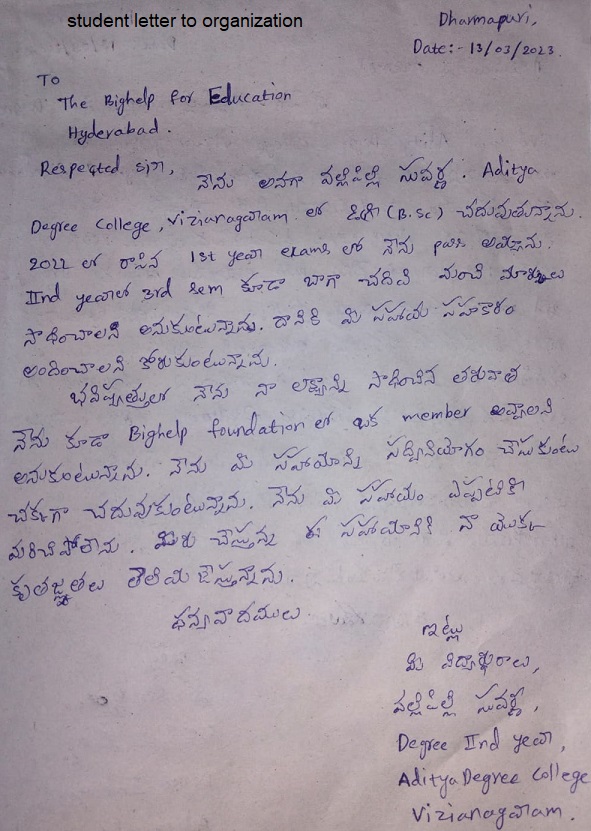 student letter to organization
Dharmapuri,
Date:- 13/03/2023.
To
The Bighelp for Education
Hyderabad.
Respected sir,
నేను అనగా వల్లిపిల్లి సువర్ణ. Aditya
Degree College, Vizianagaram లో డిగ్రీ (B.Sc) చదువుతున్నాను.
2022 లో రాసిన 1st year exams లో నేను pass అయ్యాను.
IInd yearలో 3rd sem కూడా బాగా చదివి మంచి మార్కులు
సాధించాలని అనుకుంటున్నాను. దానికి మీ సహాయ సహకారం
అందించాలని కోరుకుంటున్నాను.
భవిష్యత్తులో నేను నా లక్ష్యాన్ని సాధించిన తరువాత
నేను కూడా Bighelp foundation లో ఒక member అవ్వాలని
అనుకుంటున్నాను. నేను మీ సహాయాన్ని సద్వినియోగం చేసుకుంటు
చక్కగా చదువుకుంటున్నాను. నేను మీ సహాయం ఎప్పటికి
మరిచిపోలేను. మీరు చేస్తున్న ఈ సహాయానికి నా యొక్క
కృతజ్ఞతలు తెలియజేస్తున్నాను.
ధన్యవాదములు.
ఇట్లు
మీ విద్యార్థురాలు,
వల్లిపిల్లి సువర్ణ,
Degree IInd year,
Aditya Degree College
Vizianagaram.